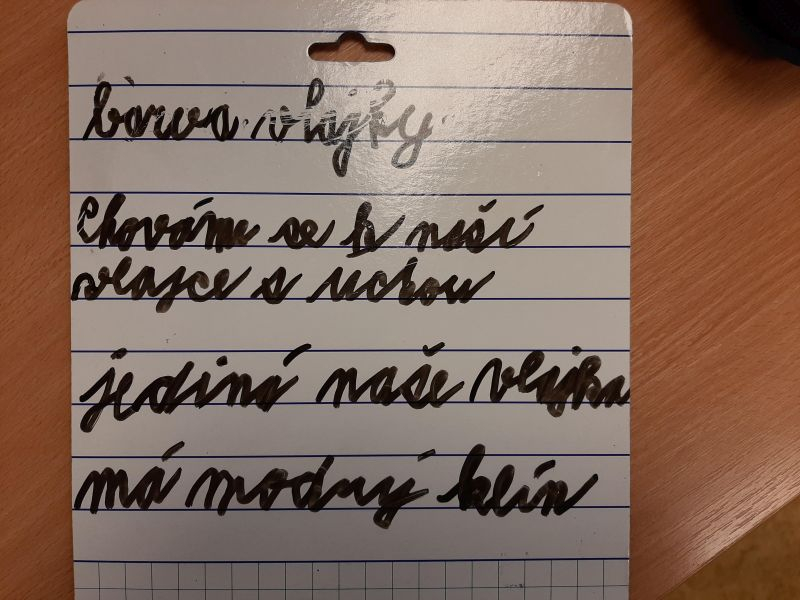 bárva vlajky
Chováme se k naší
vlajce s úctou
jediná naše vlajka
má modrý klín